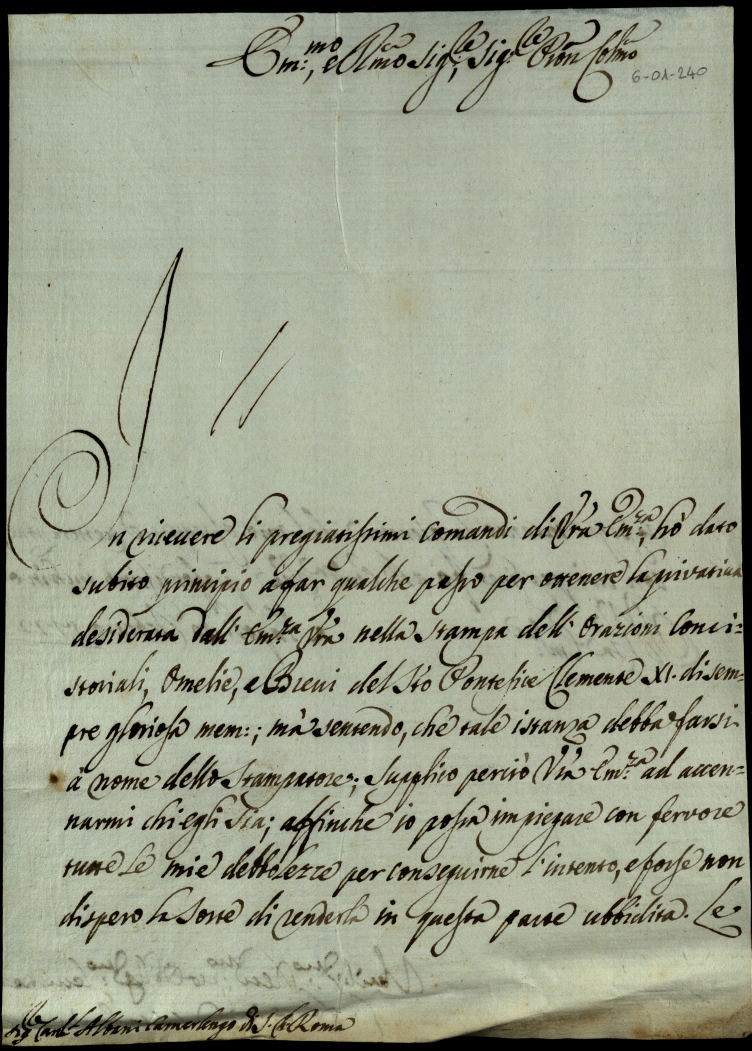 Em:mo, e Rmo Sigre, Sigre Pron Colmo
6-01-240
In riceuere li pregiatissimi comandi di Vra Emza, hò dato
subito principio a far qualche passo per ottenere la privatiua
desiderata dall' Emza Vra nella stampa dell' Orazioni Conci=
storiali, Omelie, e Breui del Sto Pontefice Clemente XI. di sem=
pre gloriosa mem:; mà sentendo, che tale istanza debba farsi
à nome dello Stampatore; supplico perciò Vra Emza ad accen-
narmi chi egli sia; affinche io possa impiegare con feruore
tutte le mie debbolezze per conseguirne l'intento, e forse non
dispero la sorte di renderla in questa parte ubbidita. Le
Sigre Cardl Albani Camerlengo di S. C. Roma